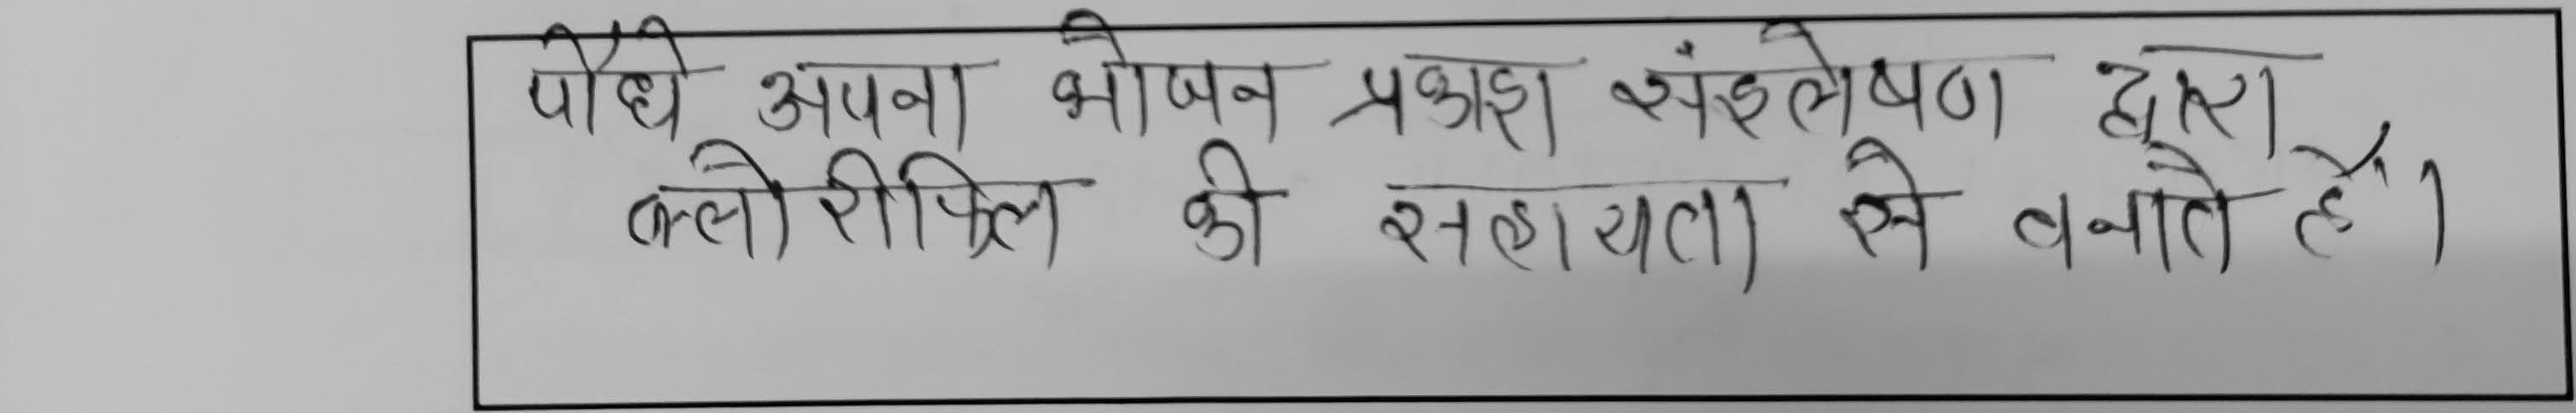 पौधे अपना भोजन प्रकाश संश्लेषण द्वारा
क्लोरीफिल की सहायता से बनाते हैं।